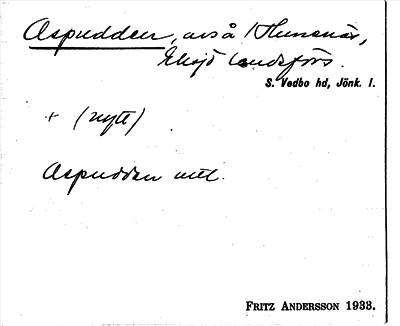 Aspudden, avs å Hunsnäs,
Eksjö landsförs.
S. Vedbo hd, Jönk. l.
+ (nytt)
Aspudden utt.
FRITZ ANDERSSON 1933.